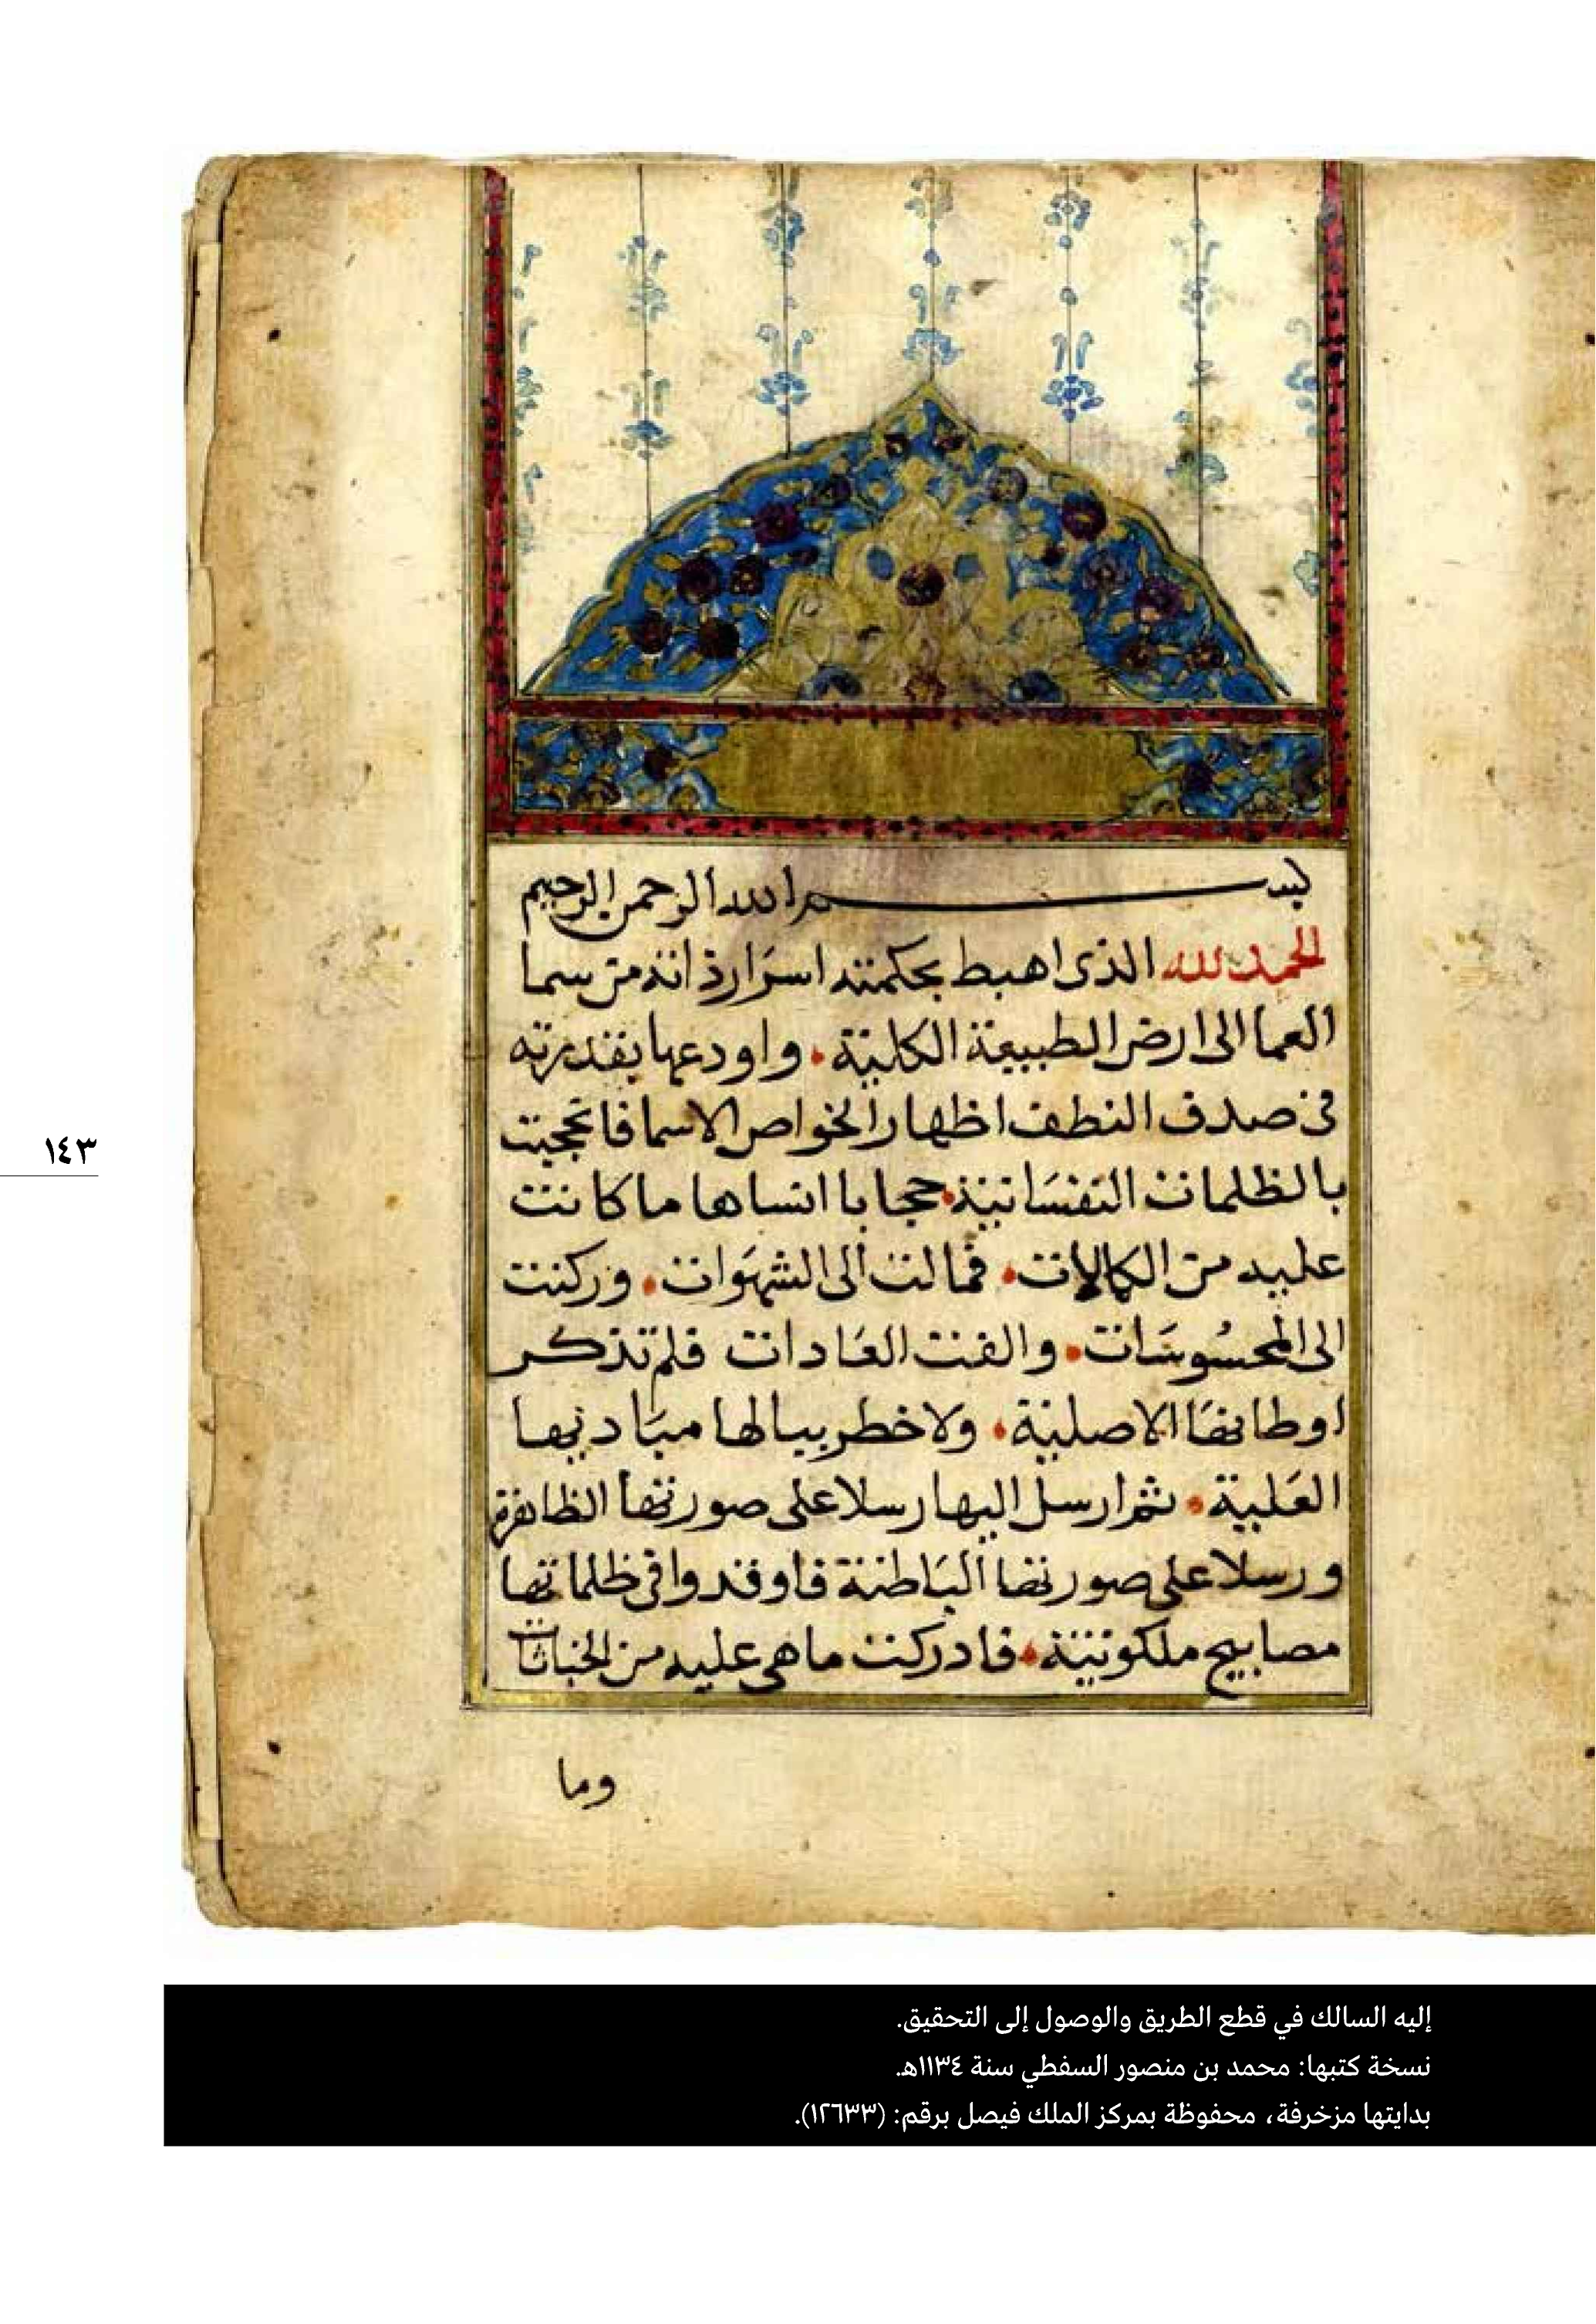 بسم الله الرحمن الرحيم
الحمد لله الذى اهبط بحكمته اسرار ذاته من سما
العما الى ارض الطبيعة الكلية . واودعها بقدرته
فى صدف النطف اظهارا لخواص الاسما فاحتجبت
بالظلمات النفسانية . حجابا انساها ما كانت
عليه من الكمالات . فمالت الى الشهوات . وركنت
الى المحسوسات . والفت العادات فلم تذكر
اوطانها الاصلية . ولا خطر ببالها مباديها
العلية . ثم ارسل اليها رسلا على صورتها الظاهرة
ورسلا على صورتها الباطنة فاوقدوا فى ظلماتها
مصابيح ملكوتية . فادركت ما هى عليه من الخباثات
وما
١٤٣
إليه السالك في قطع الطريق والوصول إلى التحقيق.
نسخة كتبها: محمد بن منصور السفطي سنة ١١٣٤هـ.
بدايتها مزخرفة، محفوظة بمركز الملك فيصل برقم: (١٢٦٣٣).